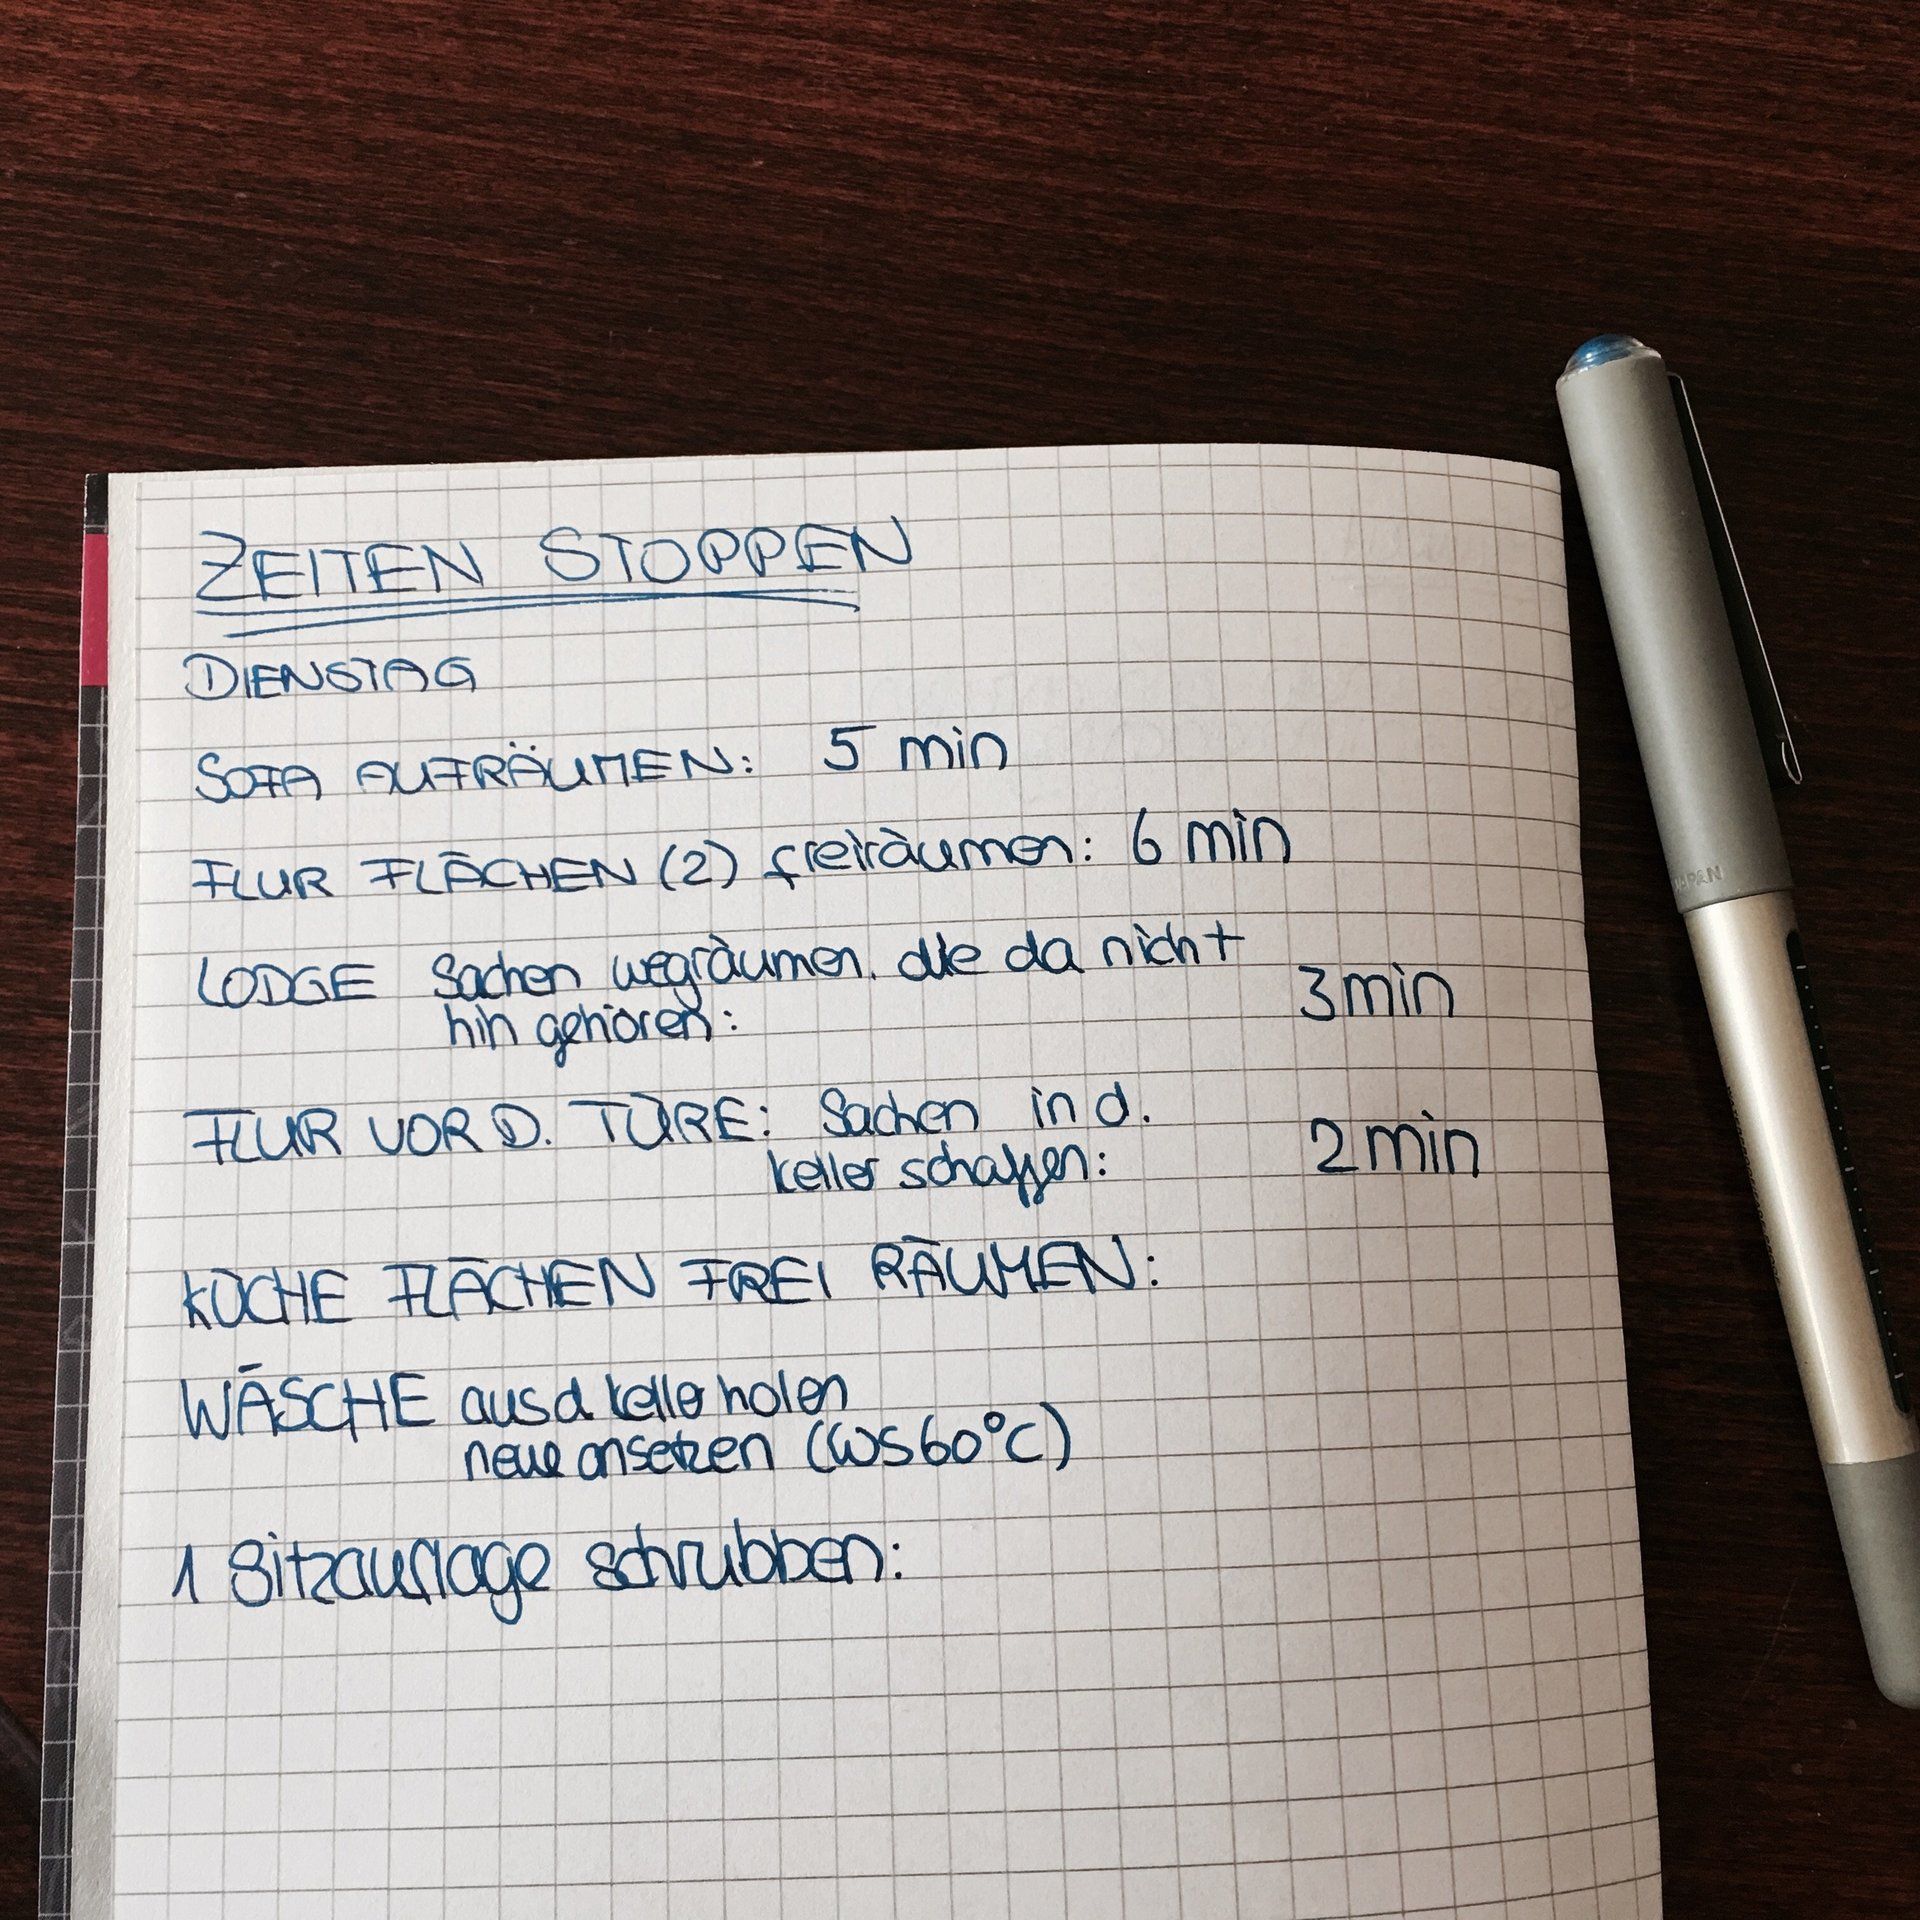 ZEITEN STOPPEN
DIENSTAG
SOFA AUFRÄUMEN: 5 min
FLUR FLÄCHEN (2) freiräumen: 6 min
LODGE Sachen wegräumen, die da nicht
hin gehören: 3 min
FLUR VOR D. TÜRE: Sachen in d.
Keller schaffen: 2 min
KÜCHE FLÄCHEN FREI RÄUMEN:
WÄSCHE aus d Keller holen
neue ansetzen (WS 60°C)
1 Sitzauflage schrubben:
JAPAN